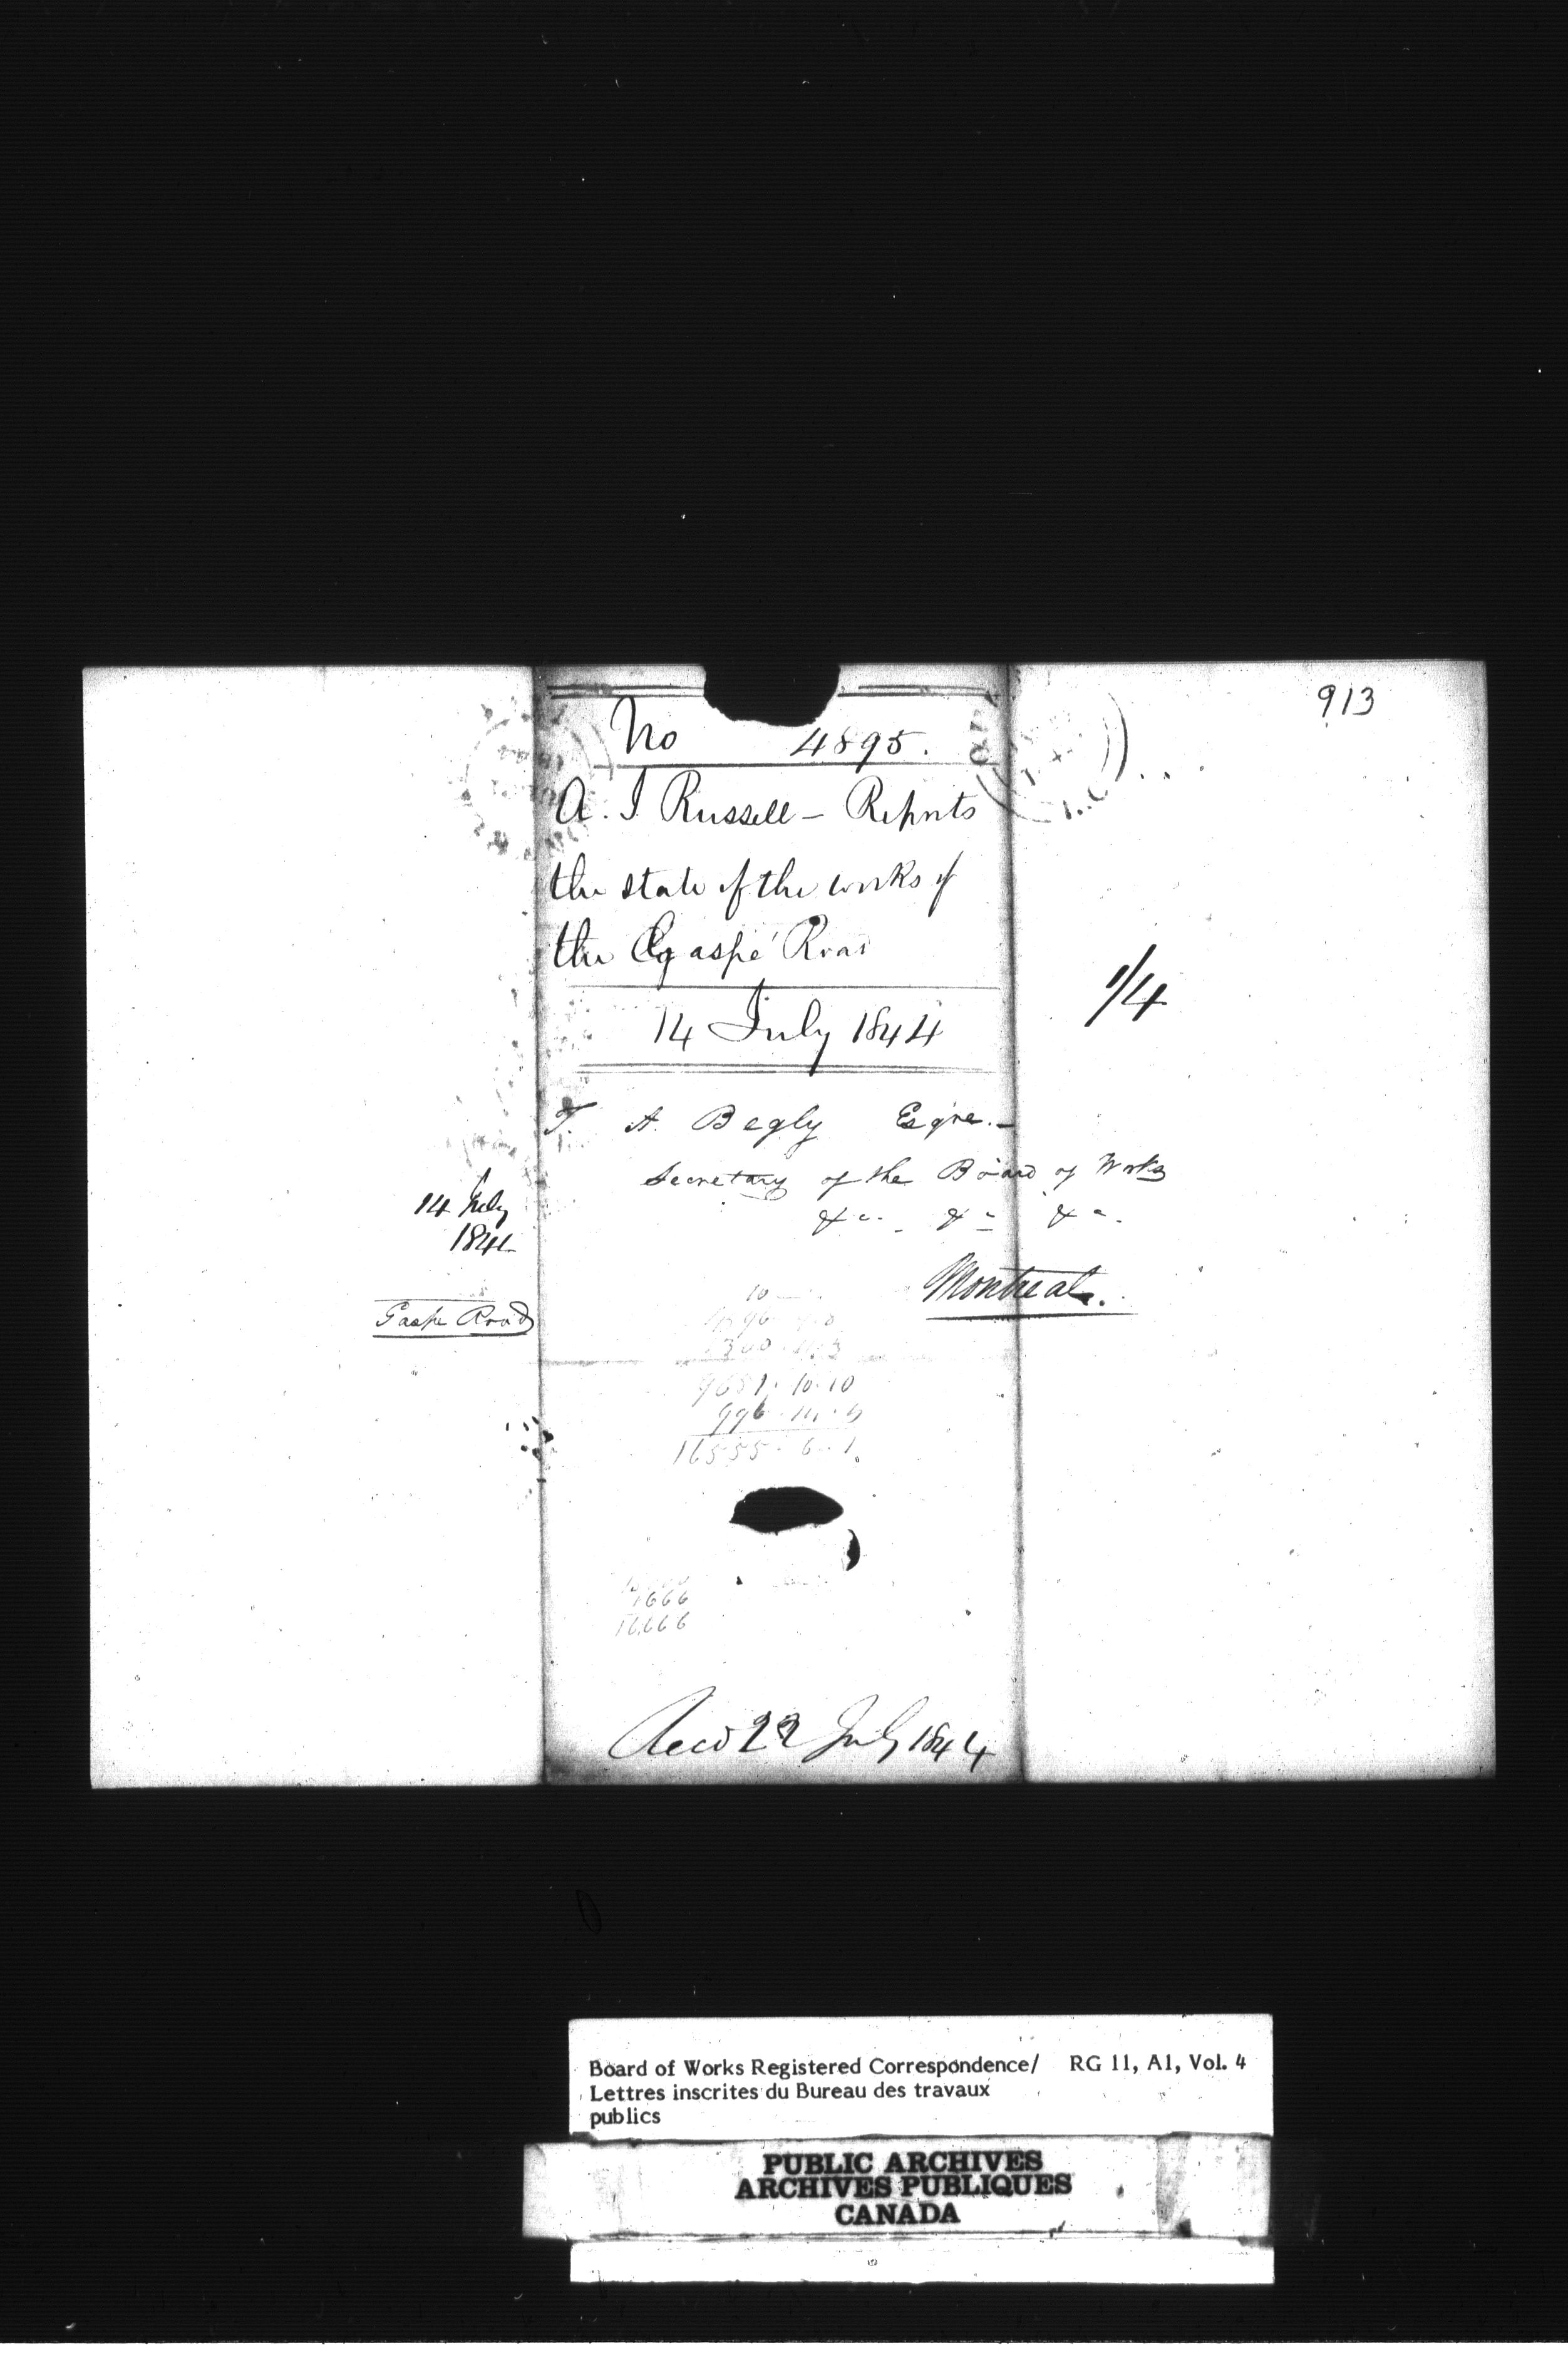 913
No 4895.
A. J Russell - Reports
the state of the works of
the Gaspé Road
14 July 1844
1/4
T. A. Begly Esqre. -
Secretary of the Board of Works
&c. - &c &c.
Montreal.
14 July
1844
Gaspe Road
10
9681. 10. 10
16555. 6. 1
1666
16,666
Recd 22 July 1844
Board of Works Registered Correspondence/ RG 11, A1, Vol. 4
Lettres inscrites du Bureau des travaux
publics
PUBLIC ARCHIVES
ARCHIVES PUBLIQUES
CANADA